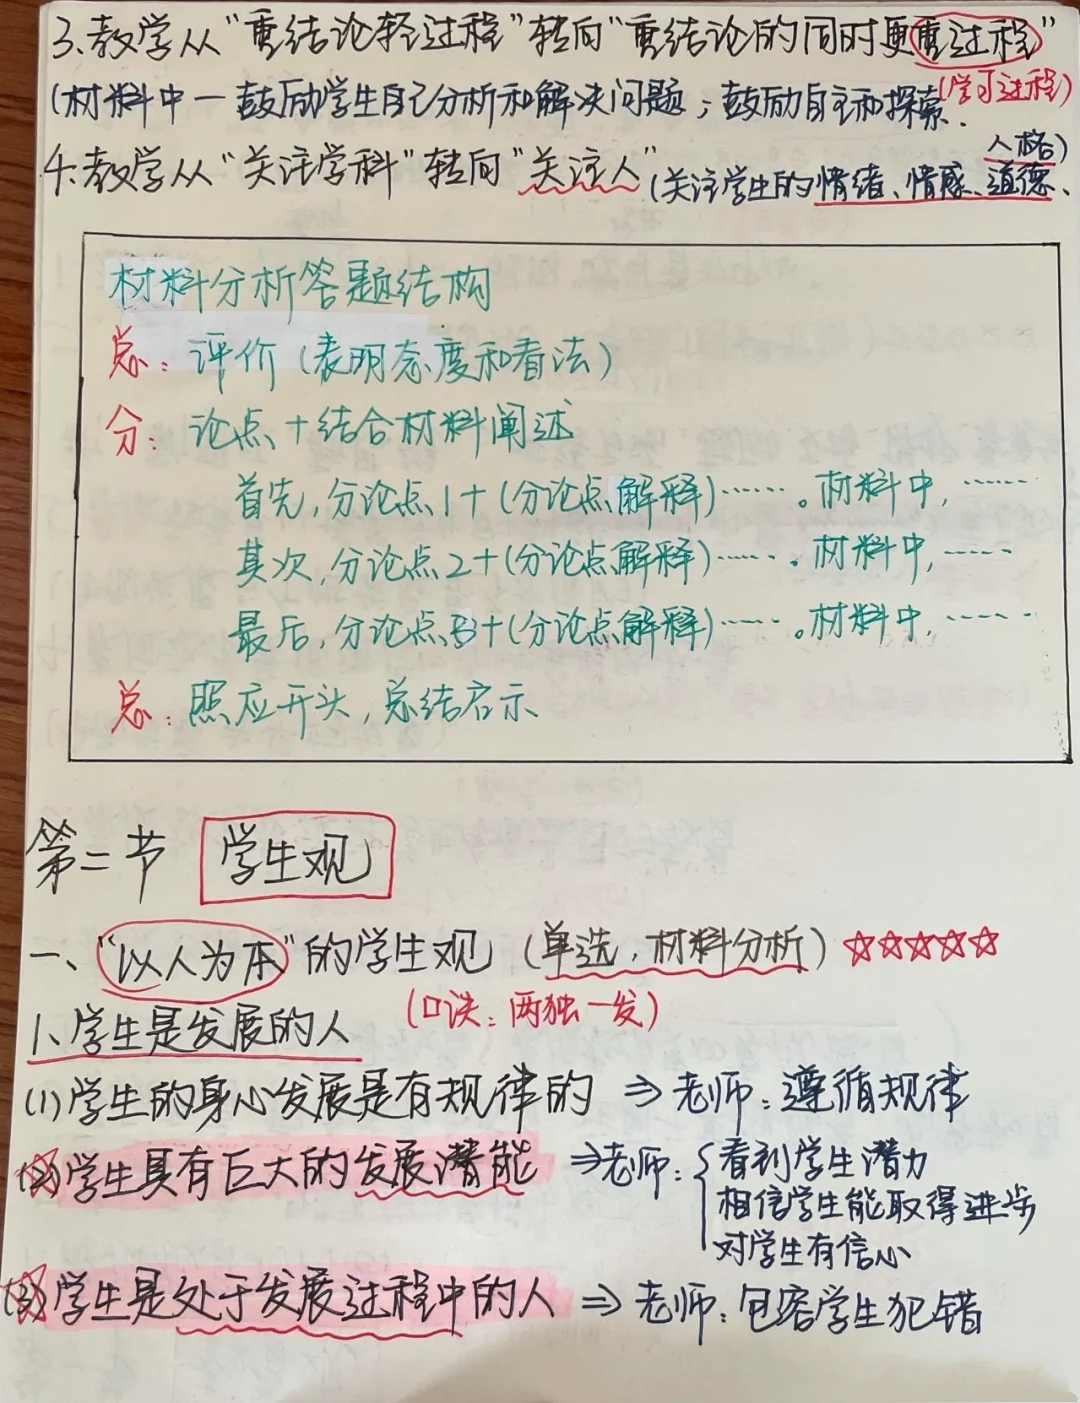 3.教学从“重结论轻过程”转向“重结论的同时更重过程”
(学习过程)
(材料中一鼓励学生自己分析和解决问题；鼓励自主和探索.
4.教学从“关注学科”转向“关注人”(关注学生的情绪、情感、道德、
人格)
材料分析答题结构
总：评价(表明态度和看法)
分：论点+结合材料阐述
首先,分论点1+(分论点解释)……。材料中,……
其次,分论点2+(分论点解释)……。材料中,……
最后,分论点3+(分论点解释)……。材料中,……
总：照应开头,总结启示
第二节 学生观
一、“以人为本”的学生观(单选,材料分析)☆☆☆☆☆
(口诀：两独一发)
1、学生是发展的人
(1)学生的身心发展是有规律的 ⇒老师：遵循规律
(2)学生具有巨大的发展潜能 ⇒老师：{看到学生潜力
相信学生能取得进步
对学生有信心
(3)学生是处于发展过程中的人 ⇒老师：包容学生犯错